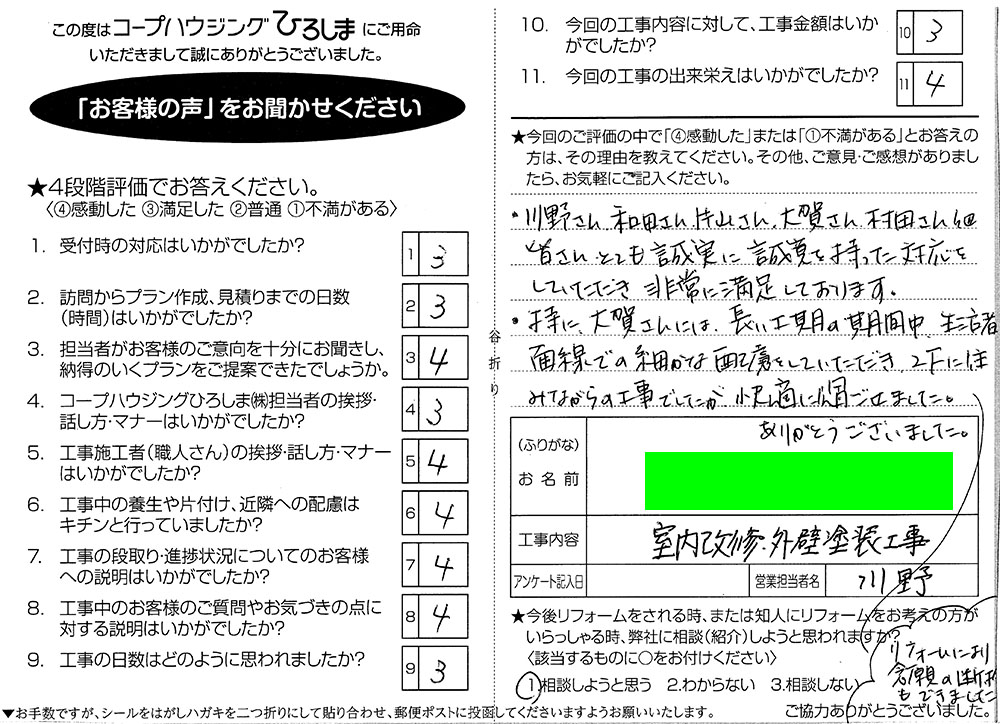 この度はコープハウジングひろしまにご用命
いただきまして誠にありがとうございました。
「お客様の声」をお聞かせください
★4段階評価でお答えください。
〈④感動した ③満足した ②普通 ①不満がある〉
1. 受付時の対応はいかがでしたか?
1 3
2. 訪問からプラン作成、見積りまでの日数
(時間)はいかがでしたか?
2 3
3. 担当者がお客様のご意向を十分にお聞きし、
納得のいくプランをご提案できたでしょうか。
3 4
4. コープハウジングひろしま㈱担当者の挨拶・
話し方・マナーはいかがでしたか?
4 3
5. 工事施工者(職人さん)の挨拶・話し方・マナー
はいかがでしたか?
5 4
6. 工事中の養生や片付け、近隣への配慮は
キチンと行っていましたか?
6 4
7. 工事の段取り・進捗状況についてのお客様
への説明はいかがでしたか?
7 4
8. 工事中のお客様のご質問やお気づきの点に
対する説明はいかがでしたか?
8 4
9. 工事の日数はどのように思われましたか?
9 3
▼お手数ですが、シールをはがしハガキを二つ折りにして貼り合わせ、郵便ポストに投函してくださいますようお願いいたします。
谷折り
10. 今回の工事内容に対して、工事金額はいか
がでしたか?
10 3
11. 今回の工事の出来栄えはいかがでしたか?
11 4
★今回のご評価の中で「④感動した」または「①不満がある」とお答えの
方は、その理由を教えてください。その他、ご意見・ご感想がありまし
たら、お気軽にご記入ください。
・川野さん、和田さん、片山さん、大賀さん、村田さん他
皆さん とても誠実に 誠意を持った対応を
していただき 非常に満足しております。
・特に、大賀さんには、長い工期の期間中、生活者
目線での細かな配慮をしていただき、2Fに住
みながらの工事でしたが 快適に過ごせました。
ありがとうございました。
(ふりがな)
お名前
工事内容 室内改修・外壁塗装工事
アンケート記入日 営業担当者名 川野
★今後リフォームをされる時、または知人にリフォームをお考えの方が
いらっしゃる時、弊社に相談(紹介)しようと思われますか?
〈該当するものに○をお付けください〉
1.相談しようと思う 2.わからない 3.相談しない
リフォームにより
念願の断捨
もできました
ご協力ありがとうございました。